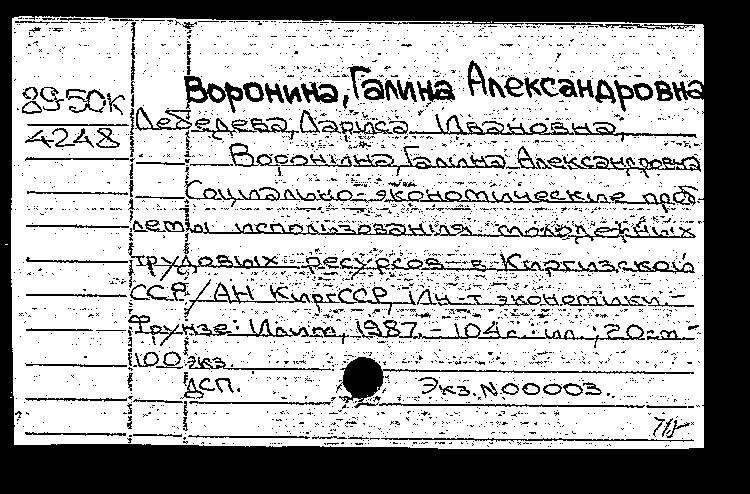 Воронина, Галина Александровна
89-50К
4248
Лебедева, Лариса Ивановна,
Воронина, Галина Александровна
Социально-экономические проб-
лемы использования молодежных
трудовых ресурсов в Киргизской
ССР / АН КиргССР, Ин-т экономики.-
Фрунзе: Илим, 1987.- 104с.: ил.; 20см.-
100 экз.
ДСП. Экз. N00003.